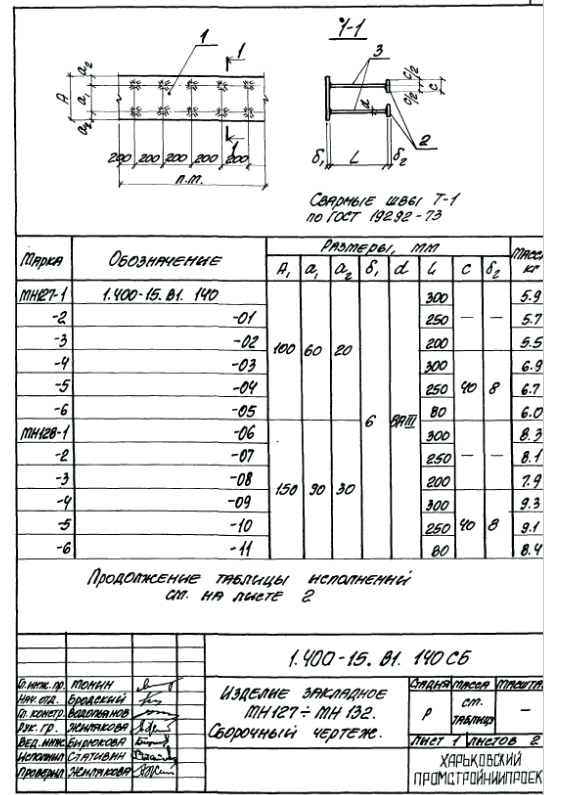 1 1 1-1 3
a₂ c/2
A a₁ c/2 c
a₂ d 2
1
200 200 200 200 200 δ₁ L δ₂
п.м.
Сварные швы Т-1
по ГОСТ 19292-73
Марка Обозначение Размеры, мм Масса
кг
A₁ a₁ a₂ δ₁ d L c δ₂
МН127-1 1.400-15.В1.140 100 60 20 6 8АIII 300 — — 5.9
-2 -01 250 5.7
-3 -02 200 5.5
-4 -03 300 40 8 6.9
-5 -04 250 6.7
-6 -05 80 6.0
МН128-1 -06 150 90 30 300 — — 8.3
-2 -07 250 8.1
-3 -08 200 7.9
-4 -09 300 40 8 9.3
-5 -10 250 9.1
-6 -11 80 8.4
Продолжение таблицы исполнений
см. на листе 2
1.400-15.В1.140СБ
Гл.инж.пр. Тонин
Нач.отд. Бродский
Гл.констр. Водопьянов
Рук.гр. Жилякова
Вед.инж. Бирюкова
Исполнил Стативин
Проверил Жилякова
Изделие закладное
МН127÷МН132.
Сборочный чертеж.
Стадия Масса Масшта
Р см. таблицу —
Лист 1 Листов 2
ХАРЬКОВСКИЙ
ПРОМСТРОЙНИИПРОЕК